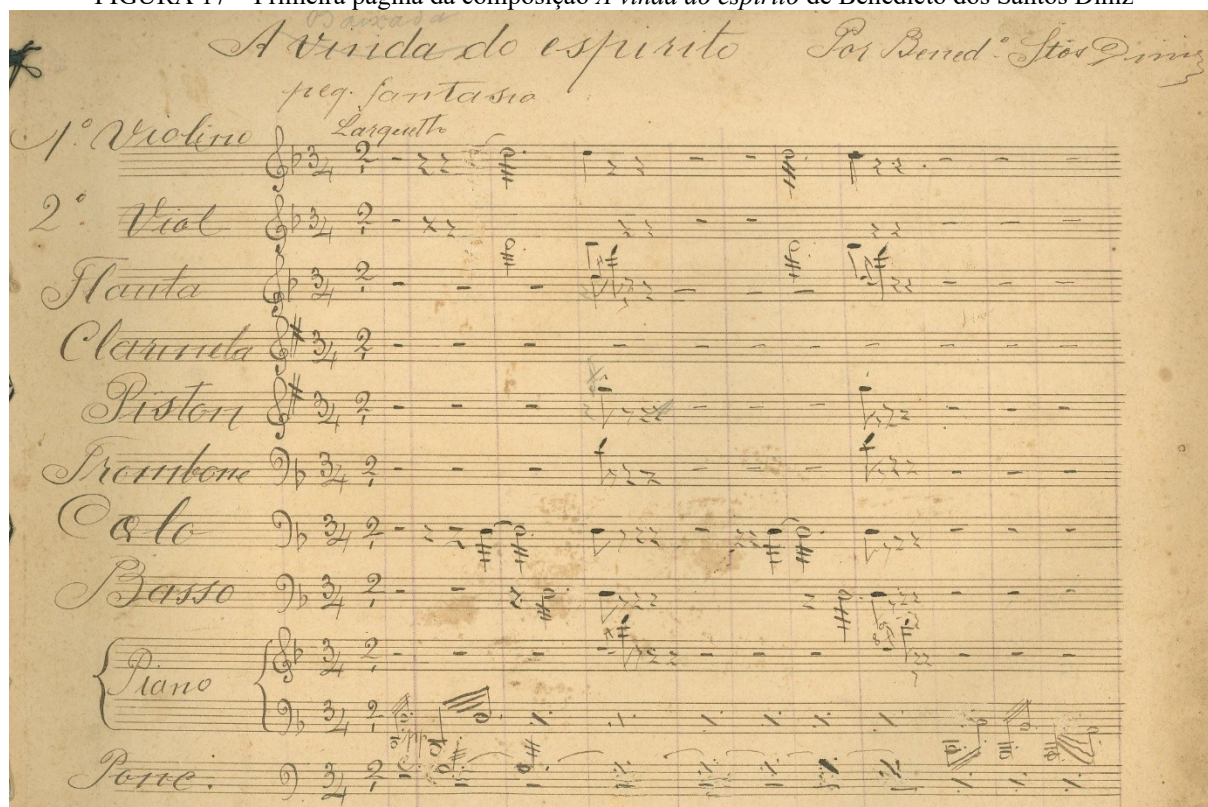 FIGURA 17 – Primeira página da composição A vinda do espirito de Benedicto dos Santos Diniz
Baixada
A vinda do espirito Por Bened.º Stos Diniz
peq. fantasia
Larguetto
1.º Violino
2.º Viol
Flauta
Clarineta
Piston
Trombone
Oclo
Basso
Piano